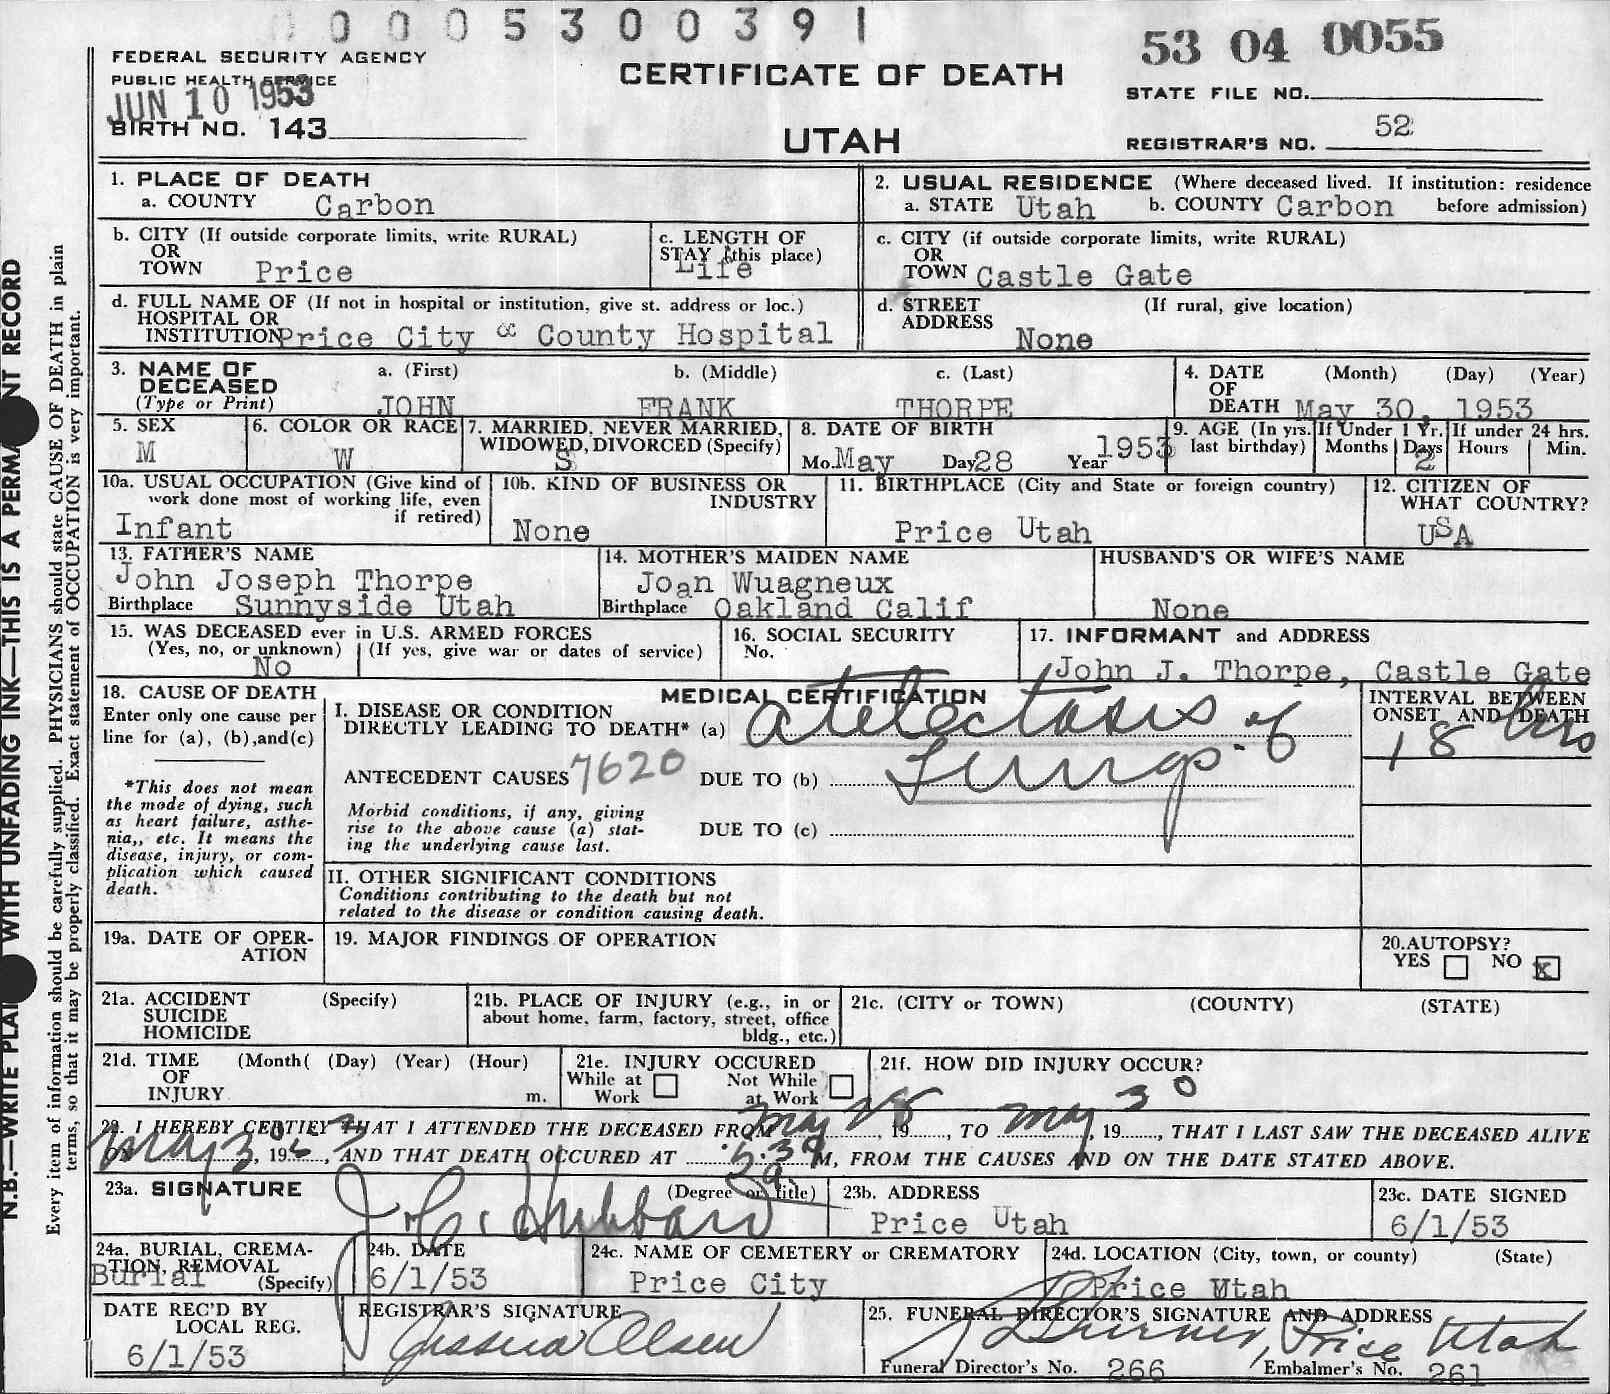 0005300391
53 04 0055
FEDERAL SECURITY AGENCY
PUBLIC HEALTH SERVICE
JUN 10 1953
BIRTH NO. 143
CERTIFICATE OF DEATH
UTAH
STATE FILE NO.
REGISTRAR'S NO. 52
N.B.—WRITE PLAI WITH UNFADING INK—THIS IS A PERMA NT RECORD
Every item of information should be carefully supplied. PHYSICIANS should state CAUSE OF DEATH in plain
terms, so that it may be properly classified. Exact statement of OCCUPATION is very important.
1. PLACE OF DEATH
a. COUNTY Carbon
2. USUAL RESIDENCE (Where deceased lived. If institution: residence
a. STATE Utah b. COUNTY Carbon before admission)
b. CITY (If outside corporate limits, write RURAL)
OR
TOWN Price
c. LENGTH OF
STAY (this place)
Life
c. CITY (if outside corporate limits, write RURAL)
OR
TOWN Castle Gate
d. FULL NAME OF (If not in hospital or institution, give st. address or loc.)
HOSPITAL OR
INSTITUTION Price City & County Hospital
d. STREET (If rural, give location)
ADDRESS
None
3. NAME OF a. (First) b. (Middle) c. (Last)
DECEASED
(Type or Print) JOHN FRANK THORPE
4. DATE (Month) (Day) (Year)
OF
DEATH May 30, 1953
5. SEX
M
6. COLOR OR RACE
W
7. MARRIED, NEVER MARRIED,
WIDOWED, DIVORCED (Specify)
S
8. DATE OF BIRTH
Mo. May Day 28 Year 1953
9. AGE (In yrs. last birthday)
If Under 1 Yr.
Months Days
2
If under 24 hrs.
Hours Min.
10a. USUAL OCCUPATION (Give kind of
work done most of working life, even
if retired)
Infant
10b. KIND OF BUSINESS OR
INDUSTRY
None
11. BIRTHPLACE (City and State or foreign country)
Price Utah
12. CITIZEN OF
WHAT COUNTRY?
USA
13. FATHER'S NAME
John Joseph Thorpe
Birthplace Sunnyside Utah
14. MOTHER'S MAIDEN NAME
Joan Wuagneux
Birthplace Oakland Calif
HUSBAND'S OR WIFE'S NAME
None
15. WAS DECEASED ever in U.S. ARMED FORCES
(Yes, no, or unknown) (If yes, give war or dates of service)
No
16. SOCIAL SECURITY
No.
17. INFORMANT and ADDRESS
John J. Thorpe, Castle Gate
18. CAUSE OF DEATH
Enter only one cause per
line for (a), (b),and(c)
*This does not mean
the mode of dying, such
as heart failure, asthe-
nia,, etc. It means the
disease, injury, or com-
plication which caused
death.
MEDICAL CERTIFICATION
I. DISEASE OR CONDITION
DIRECTLY LEADING TO DEATH* (a) atelectasis of
Lungs.
ANTECEDENT CAUSES 7620 DUE TO (b)
Morbid conditions, if any, giving
rise to the above cause (a) stat-
ing the underlying cause last.
DUE TO (c)
INTERVAL BETWEEN
ONSET AND DEATH
18 hrs
II. OTHER SIGNIFICANT CONDITIONS
Conditions contributing to the death but not
related to the disease or condition causing death.
19a. DATE OF OPER-
ATION
19. MAJOR FINDINGS OF OPERATION
20.AUTOPSY?
YES NO X
21a. ACCIDENT (Specify)
SUICIDE
HOMICIDE
21b. PLACE OF INJURY (e.g., in or
about home, farm, factory, street, office
bldg., etc.)
21c. (CITY or TOWN) (COUNTY) (STATE)
21d. TIME (Month( (Day) (Year) (Hour)
OF
INJURY m.
21e. INJURY OCCURED
While at Work Not While at Work
21f. HOW DID INJURY OCCUR?
22. I HEREBY CERTIFY THAT I ATTENDED THE DECEASED FROM May 28, 19......, TO May 30, 19......, THAT I LAST SAW THE DECEASED ALIVE
ON May 30, 1953, AND THAT DEATH OCCURED AT 5:30 a M, FROM THE CAUSES AND ON THE DATE STATED ABOVE.
23a. SIGNATURE (Degree or title)
J. C. Hubbard
23b. ADDRESS
Price Utah
23c. DATE SIGNED
6/1/53
24a. BURIAL, CREMA-
TION, REMOVAL
(Specify)
Burial
24b. DATE
6/1/53
24c. NAME OF CEMETERY or CREMATORY
Price City
24d. LOCATION (City, town, or county) (State)
Price Utah
DATE REC'D BY
LOCAL REG.
6/1/53
REGISTRAR'S SIGNATURE
Jessica Olsen
25. FUNERAL DIRECTOR'S SIGNATURE AND ADDRESS
Price Utah
Funeral Director's No. 266 Embalmer's No. 261